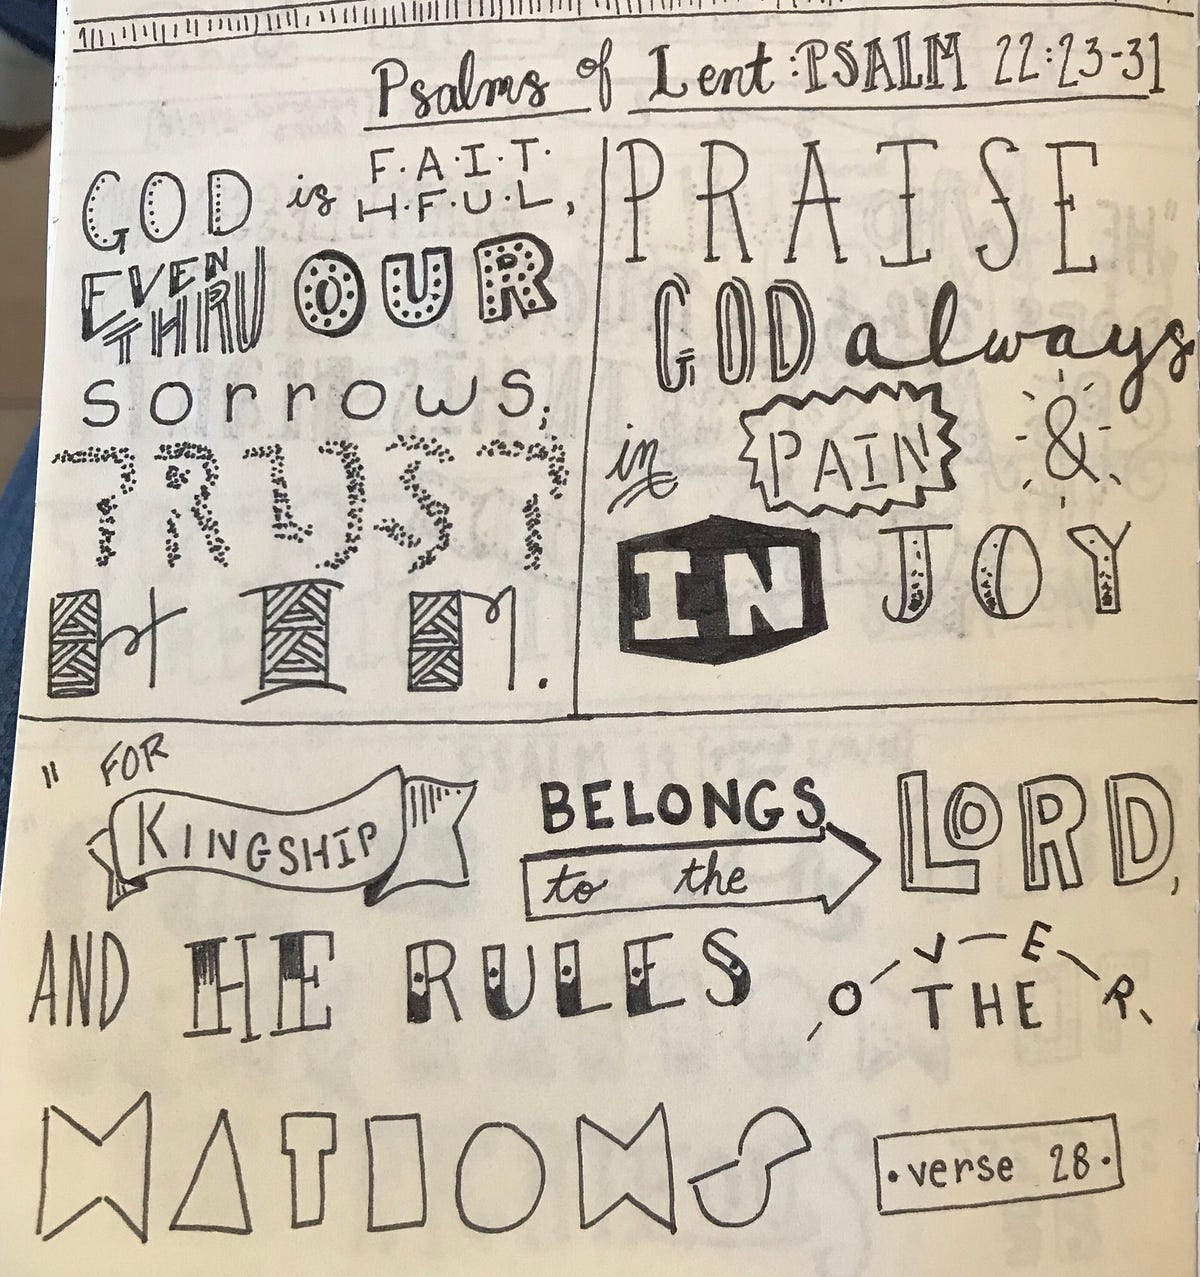 Psalms of Lent: PSALM 22:23-31
GOD is F.A.I.T.
H.F.U.L,
EVEN
THRU OUR
sorrows,
TRUST
HIM.
PRAISE
GOD always
in PAIN &
IN JOY
" FOR
KINGSHIP BELONGS
to the LORD,
AND HE RULES OVER
THE
NATIONS
·verse 28·